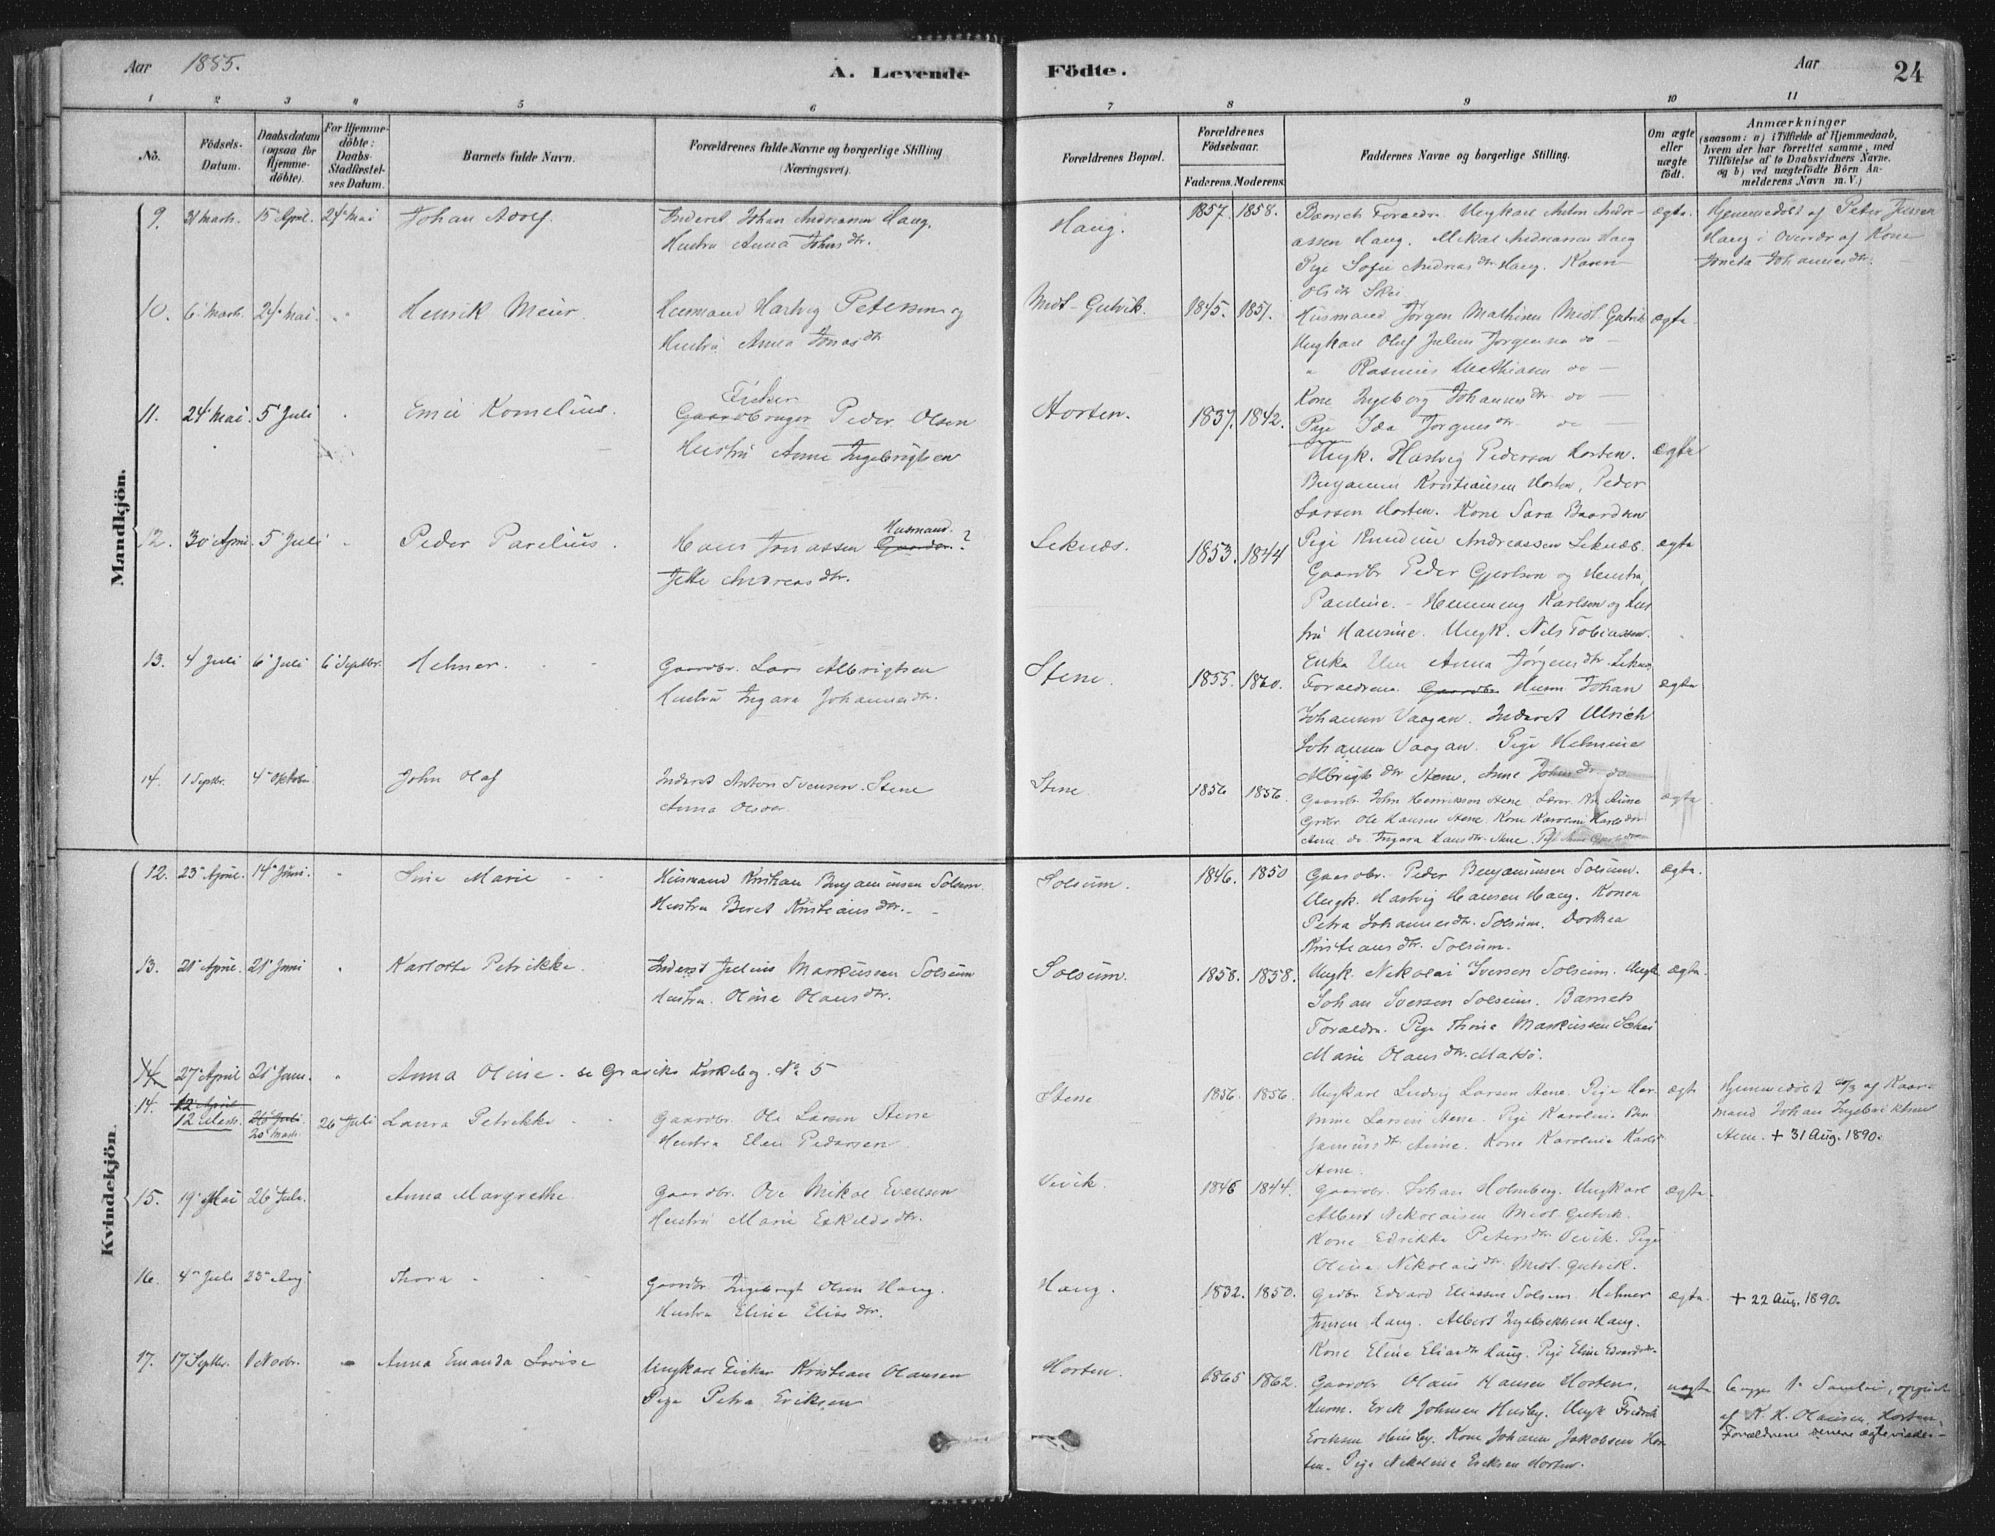 Aar 1885.
A. Levende
Födte.
Aar
24
1 2 3 4 5 6 7 8 9 10 11
No.
Födsels-Datum.
Daabsdatum (ogsaa for Hjemme-döbte).
For Hjemme-döbte: Daabs-Stadfæstel-ses Datum.
Barnets fulde Navn.
Forældrenes fulde Navne og borgerlige Stilling (Næringsvei).
Forældrenes Bopæl.
Forældrenes Födselsaar.
Faderens. Moderens.
Faddernes Navne og borgerlige Stilling.
Om ægte eller uægte födt.
Anmærkninger
(saasom: a) i Tilfælde af Hjemmedaab,
hvem der har forrettet samme, med
Tilföielse af to Daabsvidners Navne,
og b) ved uægtefödte Börn An-
melderens Navn m. V.)
Mandkjön.
9. 31 Marts. 15 April. 24 Mai Johan Adolf
Inderst Johan Andreassen Haug.
Hustru Anna Johnsdtr.
Haug. 1857. 1858.
Barnets Forældre. Ungkarl Anton Andre-
assen Haug. Mikal Andreassen Haug
Pige Sofie Andreasdtr Haug. Karen
Olsdtr Skei
ægte.
Hjemmedöbt af Peter Jensen
Haug i Overvær af Kone
Johannesdtr.
10. 6 Marts. 24 Mai. Henrik Meier.
Husmand Hartvig Petersen og
Hustru Anna Jonasdtr
Midt-Gutvik. 1845. 1851.
Husmand Jörgen Mathisen Midt Gutvik
Ungkarl Oluf Julius Jörgensen do
" Rasmus Mathiasen do
Kone Ingeborg Johannesdtr do
Pige Ida Jörgensdtr do
ægte
11. 24 Mai. 5 Juli Emil Kornelius.
Fisker
Gaardbruger Peder Olsen
Hustru Anne Ingebrigtsen
Horten. 1837. 1842.
Ungk. Hartvig Pedersen Horten.
Benjamin Kristiansen Horten, Peder
Larsen Horten. Kone Sara Baardsen
ægte
12. 30 April 5 Juli Peder Parelius.
Hans Jonassen Husmand. ?
Jette Andreasdtr.
Leknæs. 1853. 1844
Pige Andreassen Leknæs.
Gaardbr Peder Gjertsen og Hustru,
Pauline. - Hemming Karlsen og Hus
tru Hansine. Ungk. Nils Tobiassen.
Anna Jörgensdtr. Leknæs
ægte
13. 4 Juli 6 Juli 6 Septbr. Helmer.
Gaardbr. Lars Albrigtsen
Hustru Ingara Johannesdtr.
Stene. 1855. 1860.
Forældrene. Gaardbr Husm Johan
Johansen Vaagan. Inderst Ulrich
Johansen Vaagan. Pige Helmine
Albrigtsdtr Stene. Anne Johnsdtr do
ægte
14. 1 Septbr. 4 Oktober John Olaf
Inderst Anton Svensen Stene
Anna Olsdtr
Stene 1856 1856.
Gaardbr. John Henriksen Stene
Grdbr. Ole Hansen Stene. Kone Karoline Karlsdtr
Stene do Ingara Hansdtr. Stene.
ægte
Kvindekjön.
12. 23 April. 14 Juni. Sine Marie
Husmand Kristian Benjaminsen Solsum.
Hustru Beret Kristiansdtr.
Solsum. 1846. 1850
Gaardbr. Peder Benjaminsen Solsum.
Ungk. Hartvig Hansen Haug. Konen
Petra Johannesdtr. Solsum. Dorthea
Kristiansdtr. Solsum.
ægte.
13. 21 April. 21 Juni Karlotte Petrikke.
Inderst Julius Markussen Solsum
Hustru. Oline Olausdtr.
Solsum. 1858. 1858.
Ungk. Nikolai Iversen Solsum. Ungk
Johan Iversen Solsum. Barnets
Forældre. Pige Thine Markussen
Marie Olausdtr.
ægte.
14. 27 April 21 Juni. Anna Oline. se No 5
14. 12 April
12 Marts. 20 Marts. 26 Juli Laura Petrikke
Gaardbr. Ole Larsen Stene
Hustru Elen Pedersen
Stene 1856. 1856.
Ungkarl Ludvig Larsen Stene. Pige
Larsen Stene. Pige Karoline
Stene. Kone Karoline
Stene.
ægte
Hjemmedöbt 20/3 af Kaar-
mand Johan Ingebrigtsen
Stene. + 31 Aug. 1890.
15. 19 Mai 26 Juli. Anna Margrethe
Gaardbr. Ove Mikal Evensen
Hustru Marie Eskildsdtr.
Vevik. 1846 1844.
Gaardbr. Johan Holmberg. Ungkarl
Albert Nikolaisen Midt Gutvik.
Kone Edrikke Petersdtr Vevik. Pige
Oline Nikolaisdtr Midt-Gutvik.
ægte.
16. 4 Juli 23 Aug Thora
Gaardbr Ingebrigt Olsen Haug.
Hustru Eline Eliasdtr.
Haug. 1832. 1850.
Grdbr Edvard Eliassen Solsem. Helmer
Jensen Haug. Albert Ingebrigtsen Haug.
Kone Eline Eliasdtr Haug. Pige Eline Edvardsdtr
ægte.
+ 22 Aug. 1890.
17. 17 Septbr. 1 Novbr. Anna Emanda Lovise
Ungkarl Fisker Kristian Olausen
Pige Petra Eriksen
Horten. 1865 1862.
Gaardbr Olaus Hansen Horten.
Husm. Erik Johnsen Husby. Ungk Fredrik
Eriksen Husby. Kone Johanna Jakobsen Hor
ten. Pige Nikoline Eriksen Horten.
uægte
opgivet
af K. H. Olausen, Horten.
Forældrene senere ægteviede.